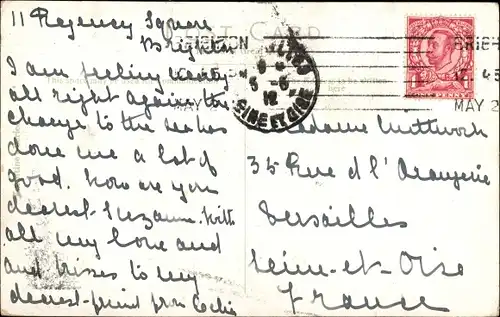 11 Regency Square
Brighton
I am feeling nearly
all right again the
change to the sea has
done me a lot of
good. How are you
dearest Suzanne. With
all my love and
and kisses to my
dearest friend from
POST CARD
BRIGHTON
MAY 2
SEINE ET OISE
12
ONE PENNY
BRIGH
12 45
MAY 2
Madame
35 Rue de l'Orangerie
Versailles
Seine-et-Oise
France